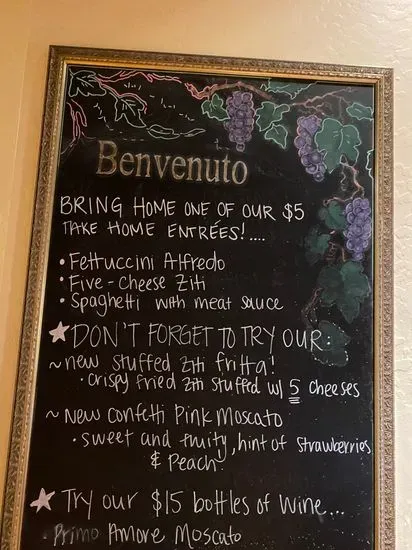 Benvenuto
BRING HOME ONE OF OUR $5
TAKE HOME ENTRÉES!....
• Fettuccini Alfredo
• Five-Cheese Ziti
• Spaghetti with meat sauce
★ DON'T FORGET TO TRY OUR:
~ new stuffed ziti fritta!
• crispy fried ziti stuffed w/ 5 cheeses
~ New Confetti Pink Moscato
• sweet and fruity, hint of strawberries
& Peach
★ Try our $15 bottles of wine...
• Primo Amore Moscato